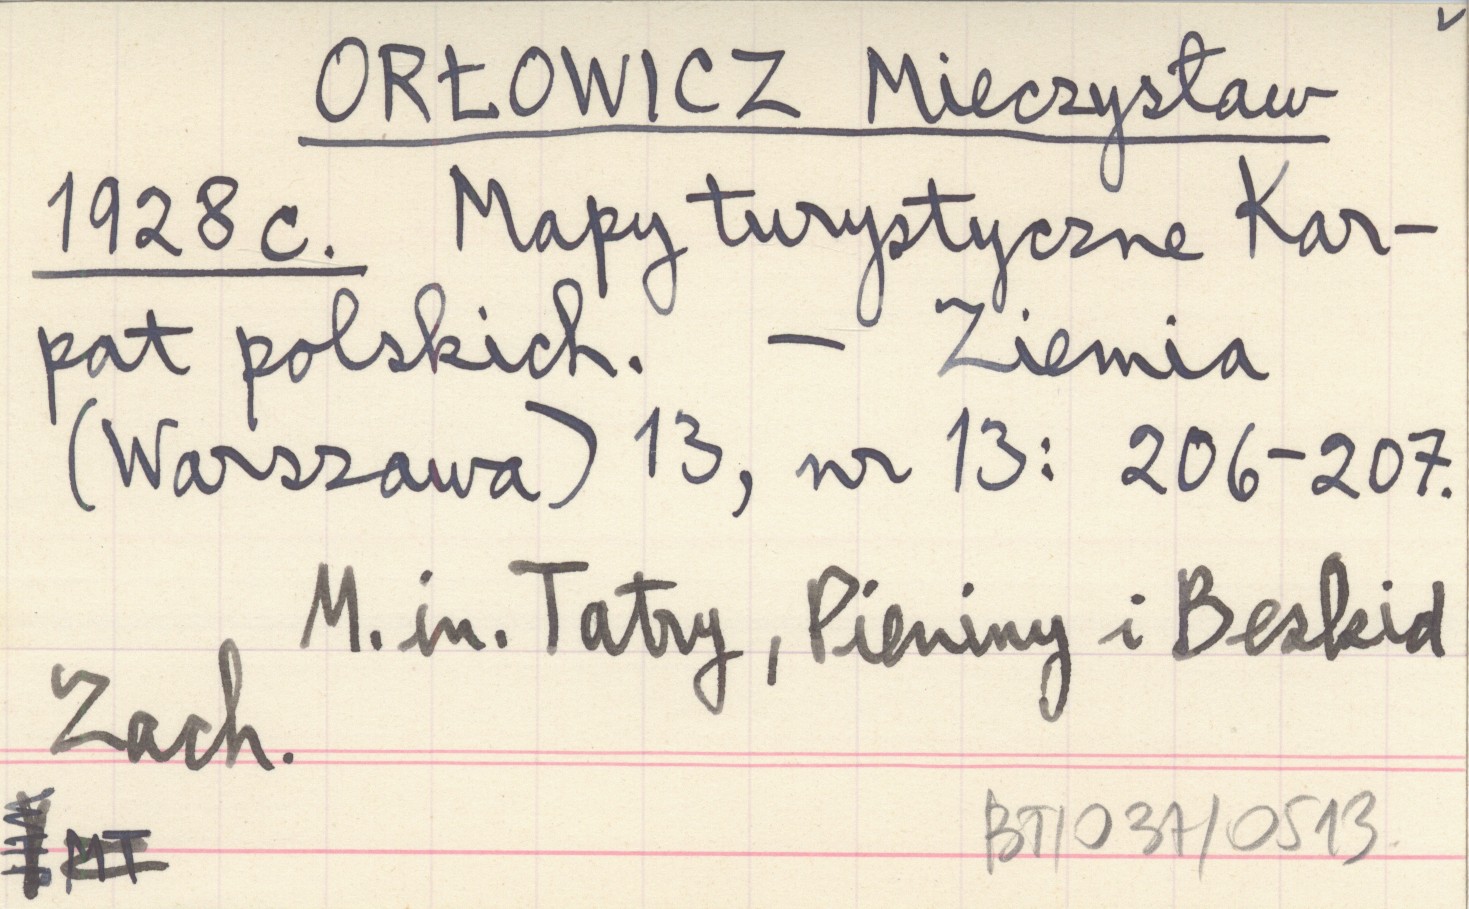 ORŁOWICZ Mieczysław
1928 c. Mapy turystyczne Kar-
pat polskich. — Ziemia
(Warszawa) 13, nr 13: 206-207.
M. in. Tatry, Pieniny i Beskid
Zach.
MT
BT/037/0513